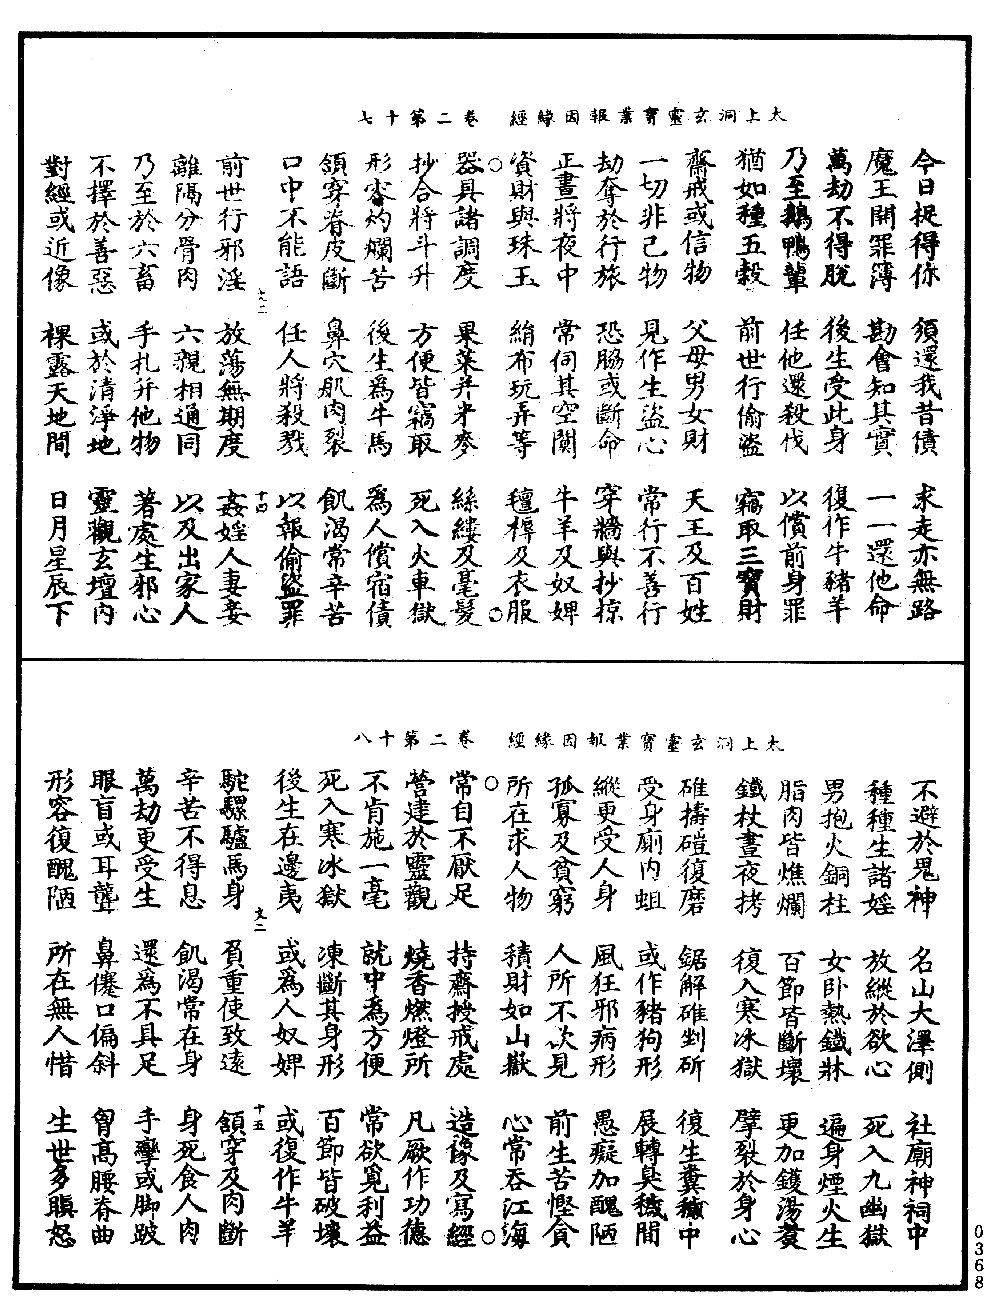 太上洞玄靈寶業報因緣經　卷二第十七
今日捉得你　須還我昔債　求走亦無路
魔王開罪簿　勘會知其實　一一還他命
萬劫不得脫　後生受此身　復作牛豬羊
乃至鵝鴨輩　任他還殺伐　以償前身罪
猶如種五穀　前世行偷盜　竊取三寶財
齋戒或信物　父母男女財　天王及百姓
一切非己物　見作生盜心　常行不善行
劫奪於行旅　恐脇或斷命　穿牆與抄掠
正晝將夜中　常伺其空闕　牛羊及奴婢
資財與珠玉　絹布玩弄等　氈褥及衣服
器具諸調度　果菜并米麥　絲縷及毫髮
抄合將斗升　方便皆竊取　死入火車獄
形容灼爛苦　後生為牛馬　為人償宿債
領穿脊皮斷　鼻穴肌肉裂　飢渴常辛苦
口中不能語　任人將殺戮　以報偷盜罪
文二　十四
前世行邪淫　放蕩無期度　姦婬人妻妾
離隔分骨肉　六親相通同　以及出家人
乃至於六畜　手札弄他物　著處生邪心
不擇於善惡　或於清淨地　靈觀玄壇內
對經或近像　裸露天地間　日月星辰下
太上洞玄靈寶業報因緣經　卷二第十八
不避於鬼神　名山大澤側　社廟神祠中
種種生諸婬　放縱於欲心　死入九幽獄
男抱火銅柱　女臥熱鐵牀　遍身煙火生
脂肉皆燋爛　百節皆斷壞　更加鑊湯煑
鐵杖晝夜拷　復入寒冰獄　擘裂於身心
碓擣磑復磨　鋸解碓剉斫　復生糞穢中
受身廁內蛆　或作豬狗形　展轉臭穢間
縱更受人身　風狂邪病形　愚癡加醜陋
孤寡及貧窮　人所不欲見　前生苦慳貪
所在求人物　積財如山嶽　心常吞江海
常自不厭足　持齋授戒處　造像及寫經
營建於靈觀　燒香燃燈所　凡厥作功德
不肯施一毫　就中為方便　常欲覓利益
死入寒冰獄　凍斷其身形　百節皆破壞
後生在邊夷　或為人奴婢　或復作牛羊
文二　十五
駝騾驢馬身　負重使致遠　領穿及肉斷
辛苦不得息　飢渴常在身　身死食人肉
萬劫更受生　還為不具足　手攣或脚跛
眼盲或耳聾　鼻僂口偏斜　胷高腰脊曲
形容復醜陋　所在無人惜　生世多瞋怒
0368